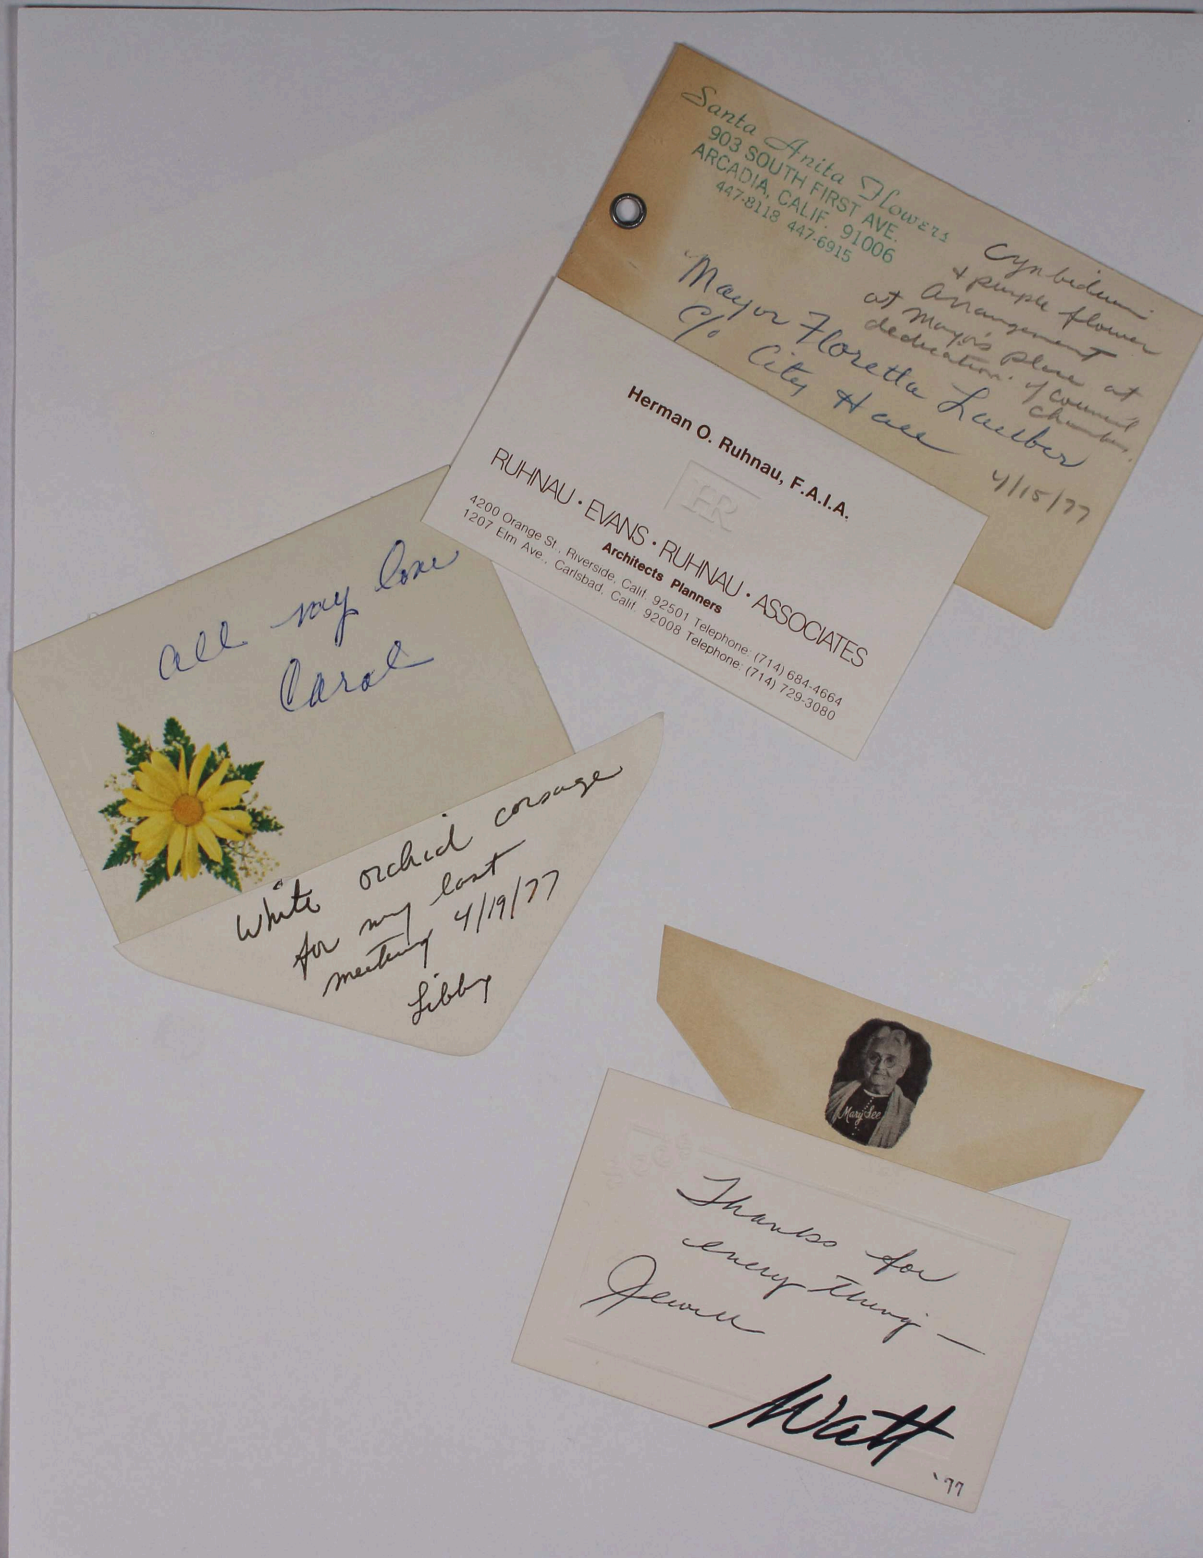 Santa Anita Flowers
903 SOUTH FIRST AVE.
ARCADIA, CALIF. 91006
447-8118 447-6915
Mayor Floretta Lauber
c/o City Hall
Cymbidium
& purple flower
Arrangement
at Mayor's place at
dedication of council
chambers.
4/15/77
Herman O. Ruhnau, F.A.I.A.
HR
RUHNAU · EVANS · RUHNAU · ASSOCIATES
Architects Planners
4200 Orange St., Riverside, Calif. 92501 Telephone: (714) 684-4664
1207 Elm Ave., Carlsbad, Calif. 92008 Telephone: (714) 729-3080
All my love
Carol
White orchid corsage
for my last
meeting 4/19/77
Libby
Mary See
Thanks for
every thing —
Jewell
Watt
'77